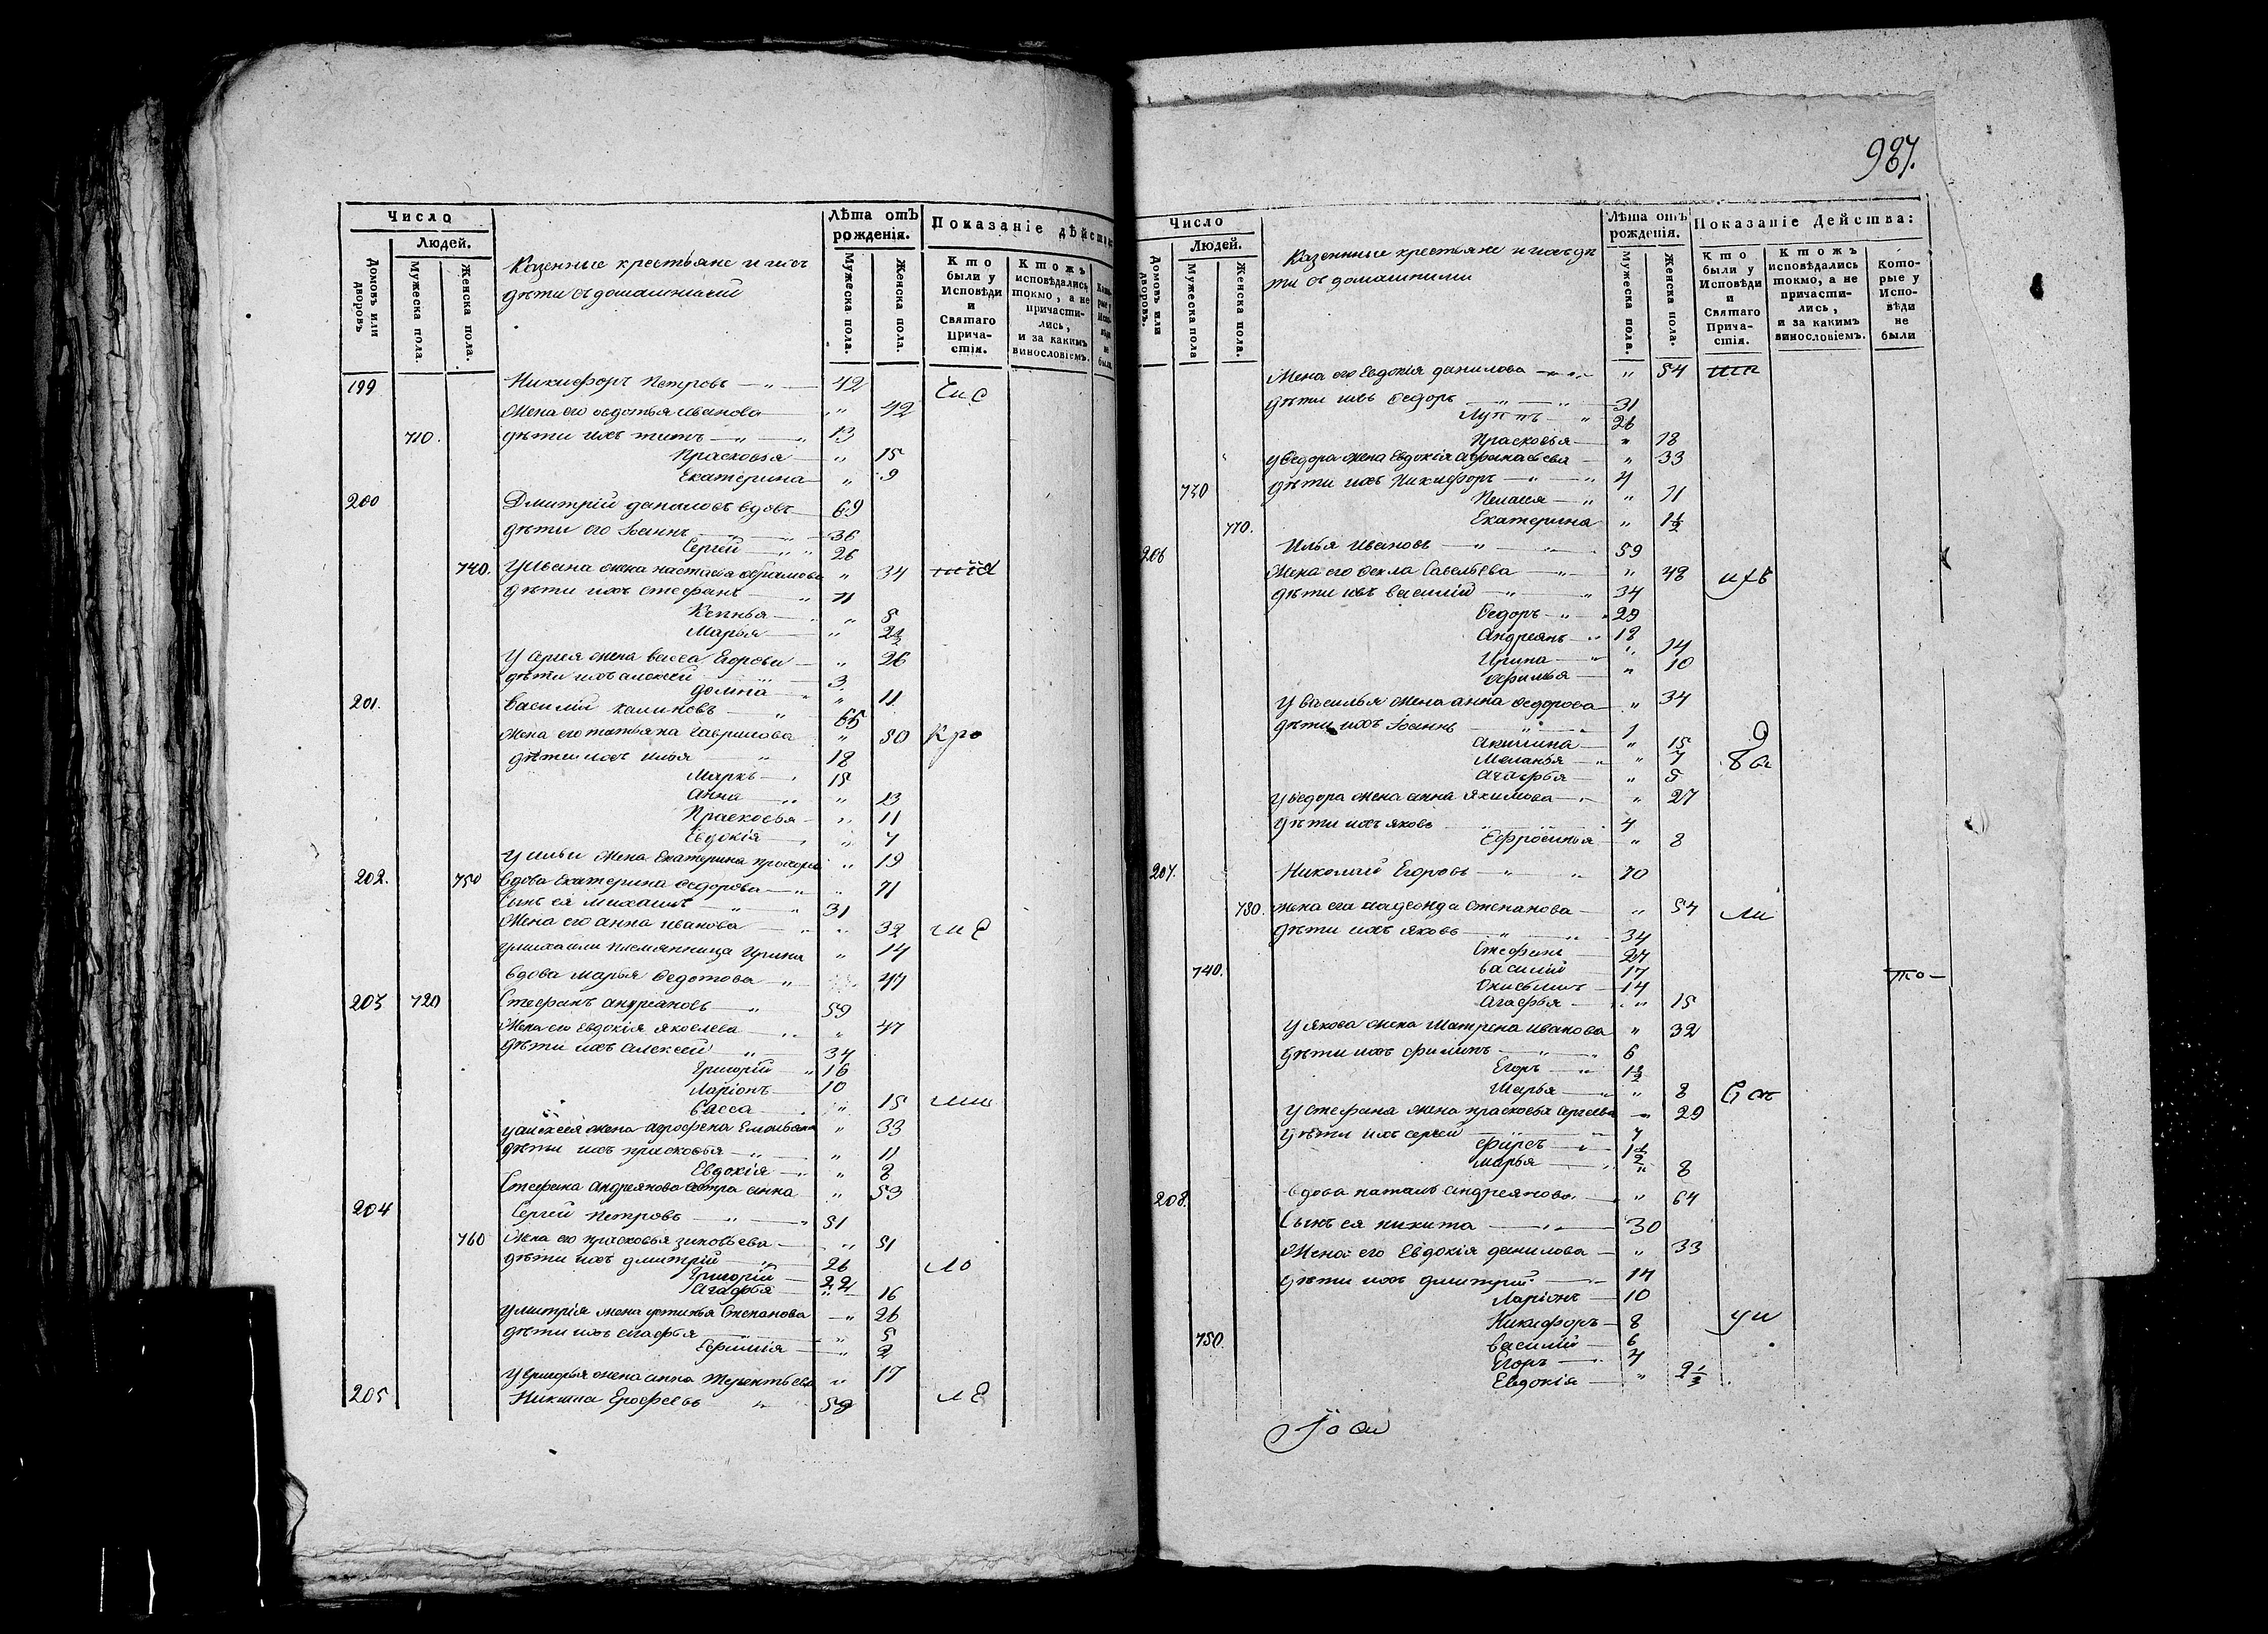 Число
Людей.
Домовъ или дворовъ
Мужеска пола.
Женска пола.
Казенные крестьяне и ихъ
дѣти съ домашними
Лѣта отъ рожденія.
Мужеска пола.
Женска пола.
Показаніе дѣйства
Кто были у Исповѣди и Святаго Прича-стія.
Ктожъ исповѣдались токмо, а не причасти-лись, и за какимъ винословіемъ.
199 Никифоръ Петровъ — " — 42
Жена его овдотья иванова " 42
710. дѣти ихъ титъ — " — " 13
Прасковья — " 15
Екатерина — " 9
200 Дмитрій даниловъ вдовъ — 69
дѣти его Іоаннъ — 36
Сергей — " 26
740. У Ивана жена настасья абрамова " 34
дѣти ихъ стефанъ — " 11
Ксенья " 5
Марья — "
У сергея жена васса Егорова — " 26
дѣти ихъ алексей — 3
домна — " 11
201. василий калиновъ — " 65
жена его татьяна гаврилова " 50
дѣти ихъ илья — " 18
Маркъ — 15
Анна — " " 13
Прасковья " 11
Евдокія — " 7
у ильи жена Екатерина " 19
202. 750 вдова Екатерина федорова — " " 71
Сынъ ея михаилъ — " 31
жена его анна иванова " 32
у михаила племянница Ирина " 14
вдова марья федотова — " 47
203 720 Стефанъ андреяновъ — " 59
Жена его Евдокія яковлева " 47
дѣти ихъ алексей — " 34
Григорій — " 16
Ларіонъ — 10
васса — " 15
у алексея жена агрофена " 33
дѣти ихъ прасковья — " " 11
Евдокія — " " 8
Стефана андреянова сестра анна " 53
204 Сергей Петровъ — " — " 51
760 Жена его прасковья зиновьева — " 51
дѣти ихъ дмитрій — 26
Григорій — 22
Агафья — " 16
у митрія жена устинья Степанова — " 26
дѣти ихъ агафья — " 5
Ефимія — " 2
у григорья жена анна терентьева " 17
205 Никита Ерофеевъ " 59
987.
Число
Людей.
Домовъ или дворовъ.
Мужеска пола
Женска пола.
Казенные крестьяне и ихъ дѣ
ти съ домашними
Лѣта отъ рожденія.
Мужеска пола.
Женска пола.
Показаніе Действа:
Кто были у Исповѣди и Святаго Прича-стія.
Ктожъ исповѣдались токмо, а не причасти-лись, и за какимъ винословіемъ.
Кото-рые у Испо-вѣди не были
Жена его Евдокія данилова — " 54
дѣти ихъ федоръ — " — " 31
26
Прасковья — " 18
у федора жена Евдокія " 33
730 дѣти ихъ Никифоръ — " — " 4
Пелагея — " " 11
770. Екатерина " 1½
206 Илья ивановъ — " — " 59
Жена его фекла Савельева — " " 48
дѣти ихъ василій — " " 34
федоръ — " 29
Андреянъ — " 18
Ирина — " " 14
" 10
у василья жена анна федорова " 34
дѣти ихъ Іоаннъ — " 1
Акилина — " 15
Меланья — " " 7
Агафья — " 5
у федора жена анна якимова — " 27
дѣти ихъ яковъ — 4
Ефросинья " 8
207. Николай Егоровъ — " " 70
780. жена его Степанова — " 54
дѣти ихъ яковъ — " " 34
Стефанъ 27
740. василій 17
14
Агафья — " 15
у якова жена Матрена иванова " 32
дѣти ихъ филипъ — " " 6
Егоръ — " 1½
Марья — " 8
у стефана жена прасковья сергеева " 29
дѣти ихъ сергей — 7
фирсъ — " 1½
марья — " 8
208. вдова наталья андреянова " 64
Сынъ ея никита — " — 30
Жена его Евдокія данилова — " 33
дѣти ихъ дмитрій — 14
Ларіонъ — 10
Никифоръ — 8
750. василій — 6
Егоръ — 4
Евдокія — "